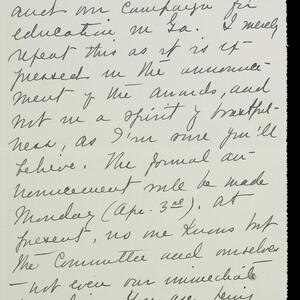 and our campaign for
education in Ga. I merely
repeat this as it is ex-
pressed in the announce-
ment of the awards, and
not in a spirit of boastful-
ness, as I'm sure you'll
believe. The formal an-
nouncement will be made
Monday (Apr. 3rd). At
present, no one knows but
the Committee and ourselves
- not even our immediate
You are being